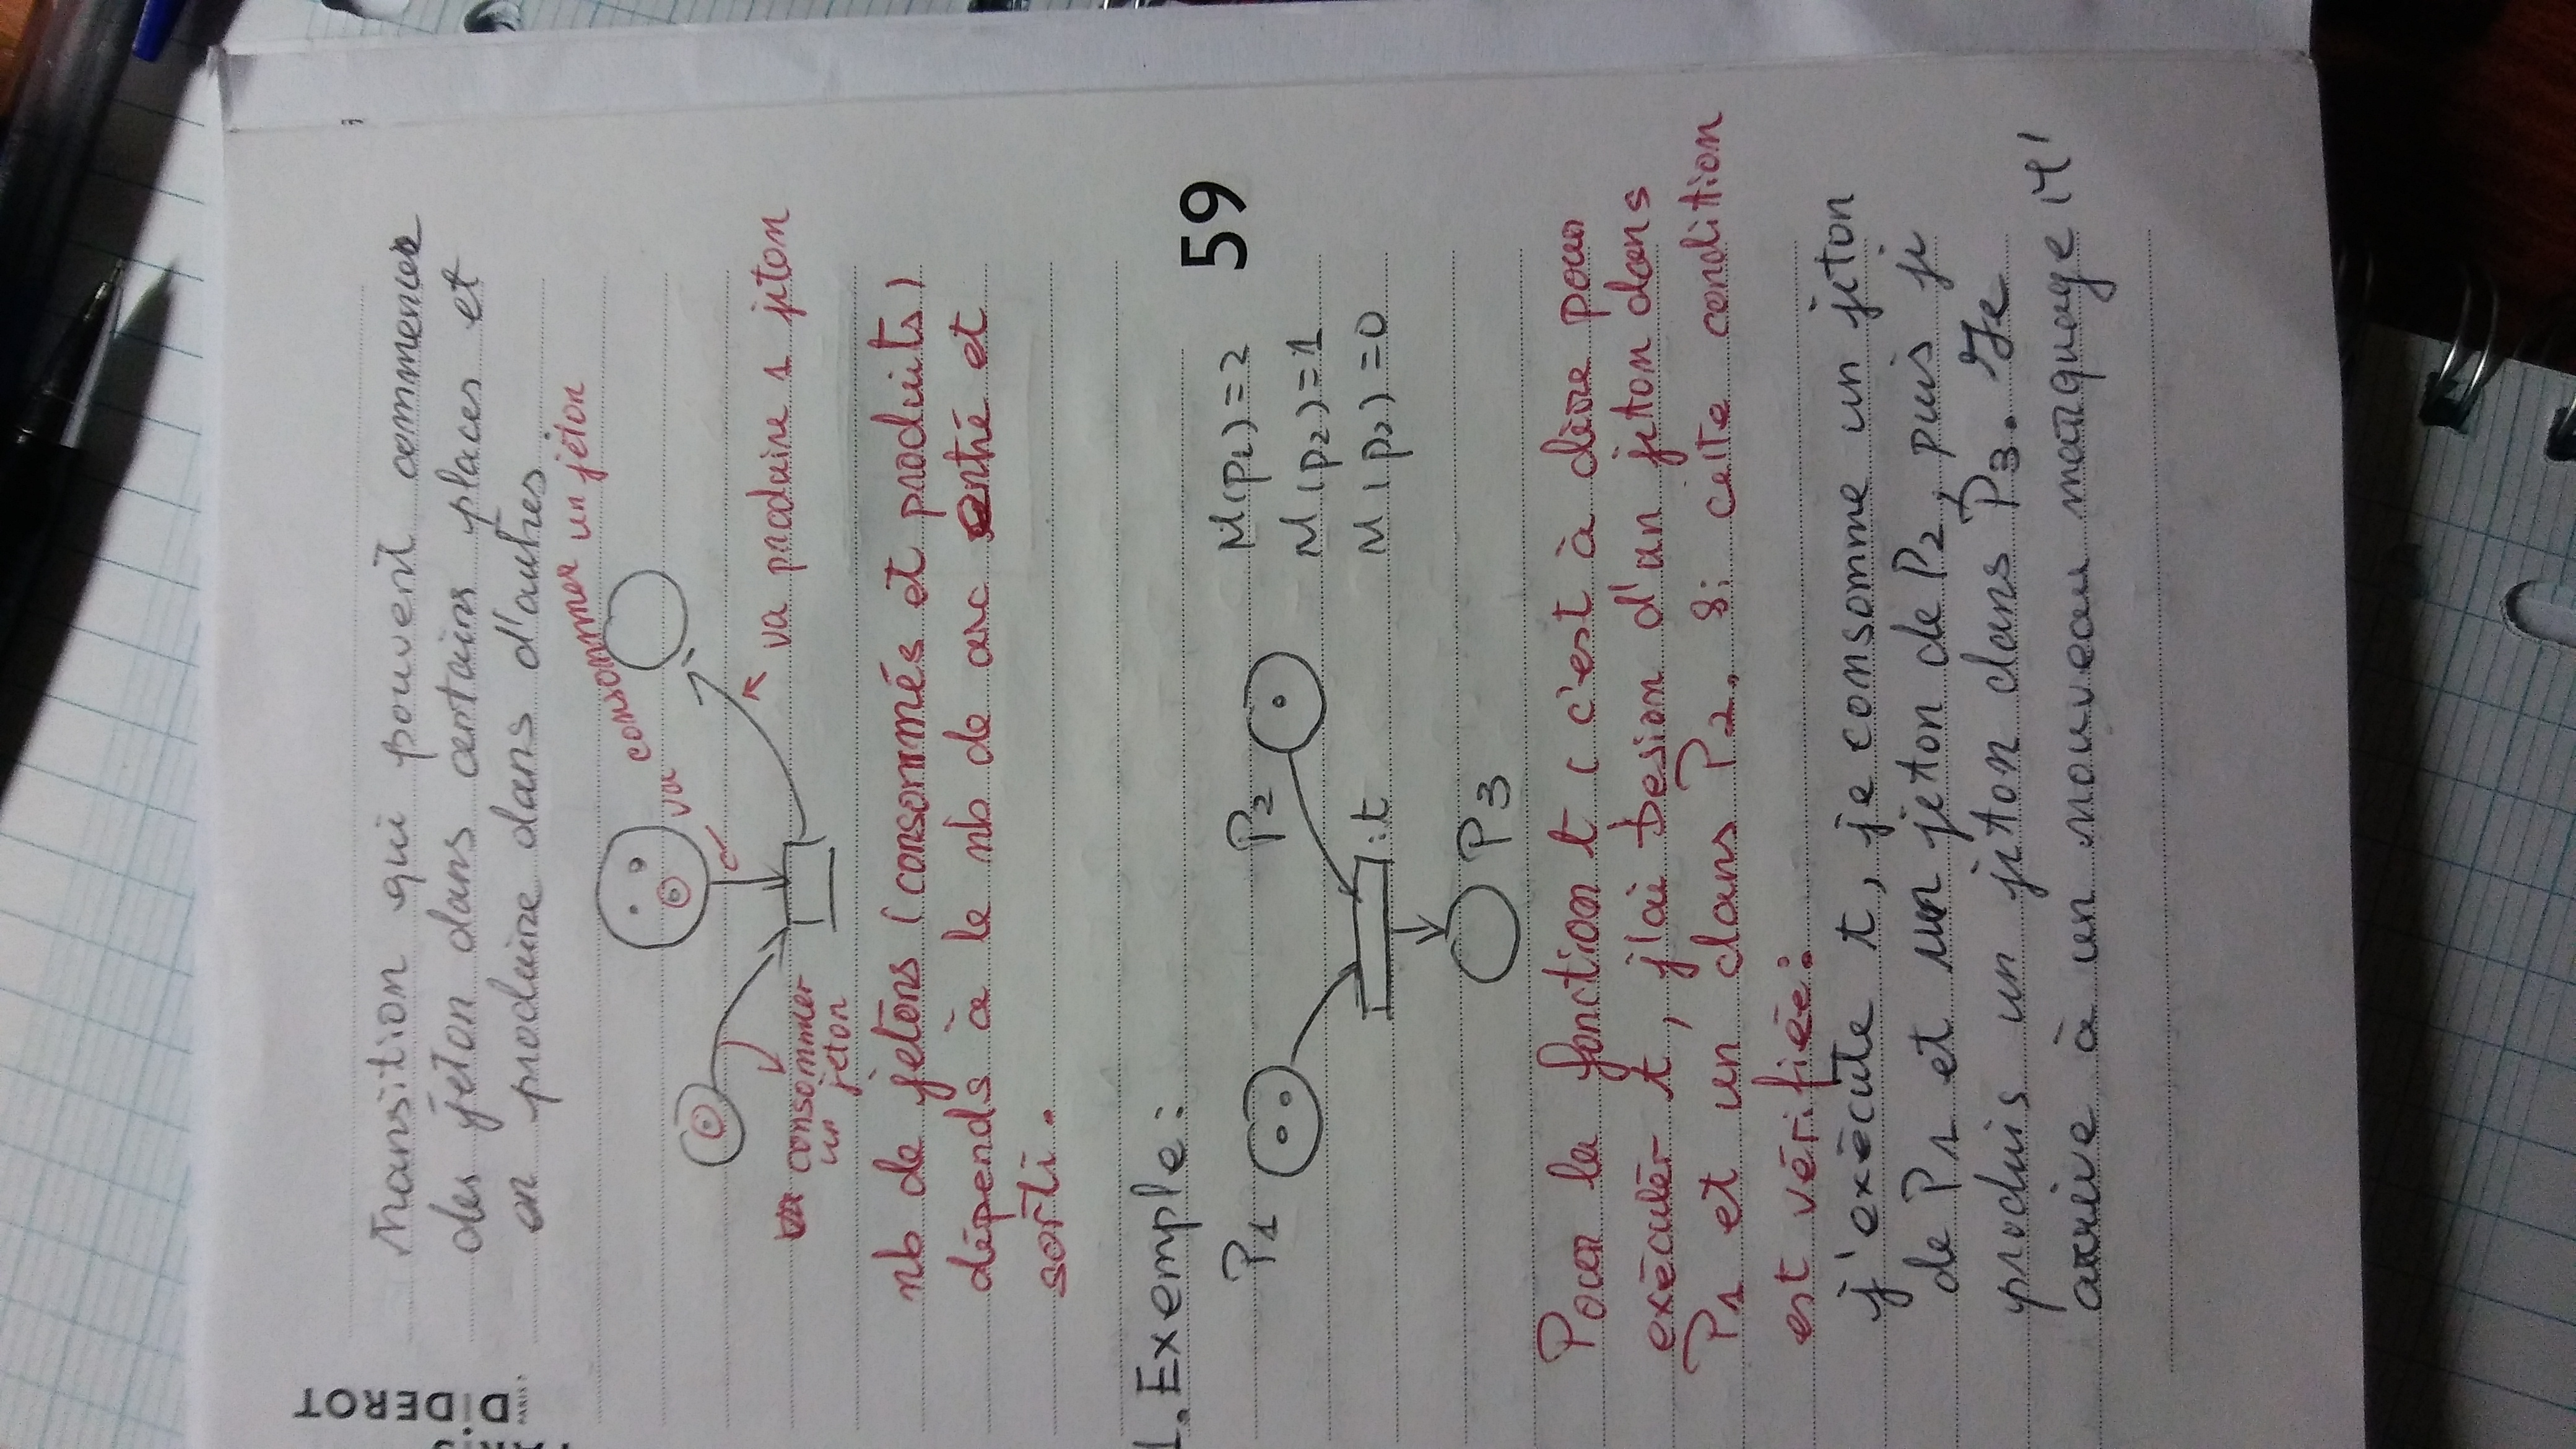 DiDEROT
PARIS 7
transition qui pouvent commencer
des jeton dans certains places et
en produire dans d'autres.
va consommer un jeton
consommer
un jeton
va produire 1 jeton
nb de jetons (consommés et produits)
dépends à le nb de arc entré et
sorti.
1. Exemple:
P1
P2
M(p1)=2
59
M(p2)=1
:t
M(p3)=0
P3
Pour la fonction t (c'est à dire pour
exécutér t, j'ai besion d'un jeton dans
P1 et un dans P2. Si cette condition
est vérifiée:
j'exécute t, je consomme un jeton
de P1 et un jeton de P2, puis je
produis un jeton dans P3. Je
arrive à un nouveau marquage M'